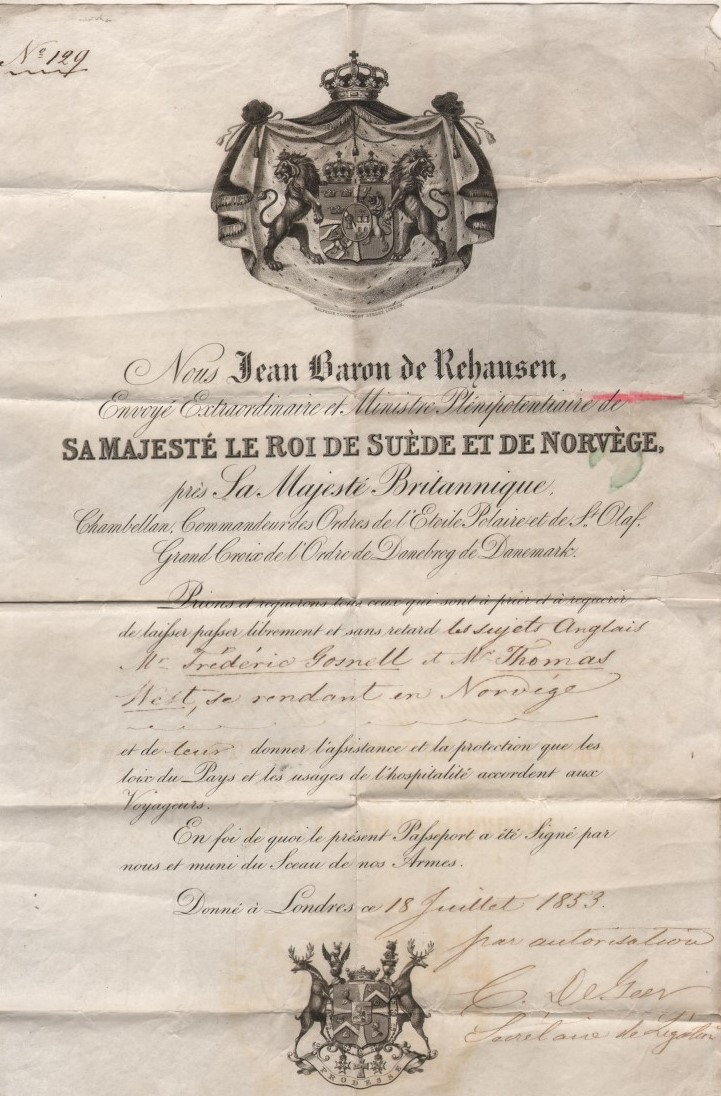 Nº 129
Nous Jean Baron de Rehausen,
Envoyé Extraordinaire et Ministre Plénipotentiaire de
SA MAJESTÉ LE ROI DE SUÈDE ET DE NORVÈGE,
près Sa Majesté Britannique,
Chambellan, Commandeur des Ordres de l'Etoile Polaire et de St. Olaf,
Grand Croix de l'Ordre de Danebrog de Danemark.
Prions et requerons tous ceux qui sont à prier et à requerir
de laisser passer librement et sans retard les sujets Anglais
Mr. Frédéric Gosnell et Mr. Thomas
West, se rendant en Norvége
et de leur donner l'assistance et la protection que les
loix du Pays et les usages de l'hospitalité accordent aux
Voyageurs.
En foi de quoi le présent Passeport a été Signé par
nous et muni du Sceau de nos Armes.
Donné à Londres ce 18 Juillet 1853.
par autorisation
C. De Geer
Secrétaire de Légation
PRODESSE